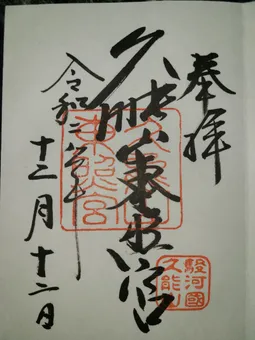 奉拝
久能山東照宮
令和二年
十二月十二日
東照宮
駿河國
久能山